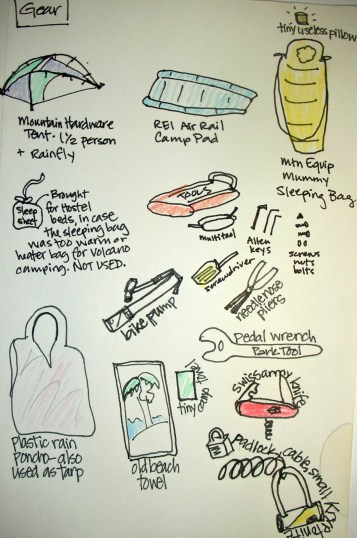 Gear
tiny useless pillow
Mountain Hardware
Tent- 1½ person
+ Rainfly
REI Air Rail
Camp Pad
Mtn Equip
Mummy
Sleeping Bag
Sleep
sheet
Brought
for hostel
beds, in case
the sleeping bag
was too warm or
camping. NOT USED.
TOOLS
multitool
Allen
keys
screws
nuts
bolts
screwdriver
needlenose
pliers
bike pump
Pedal wrench
Park Tool
Plastic rain
Poncho-also
used as tarp
old beach
towel
tiny camp
towel
Swiss army knife
Padlock, cable, small
Kryptonite